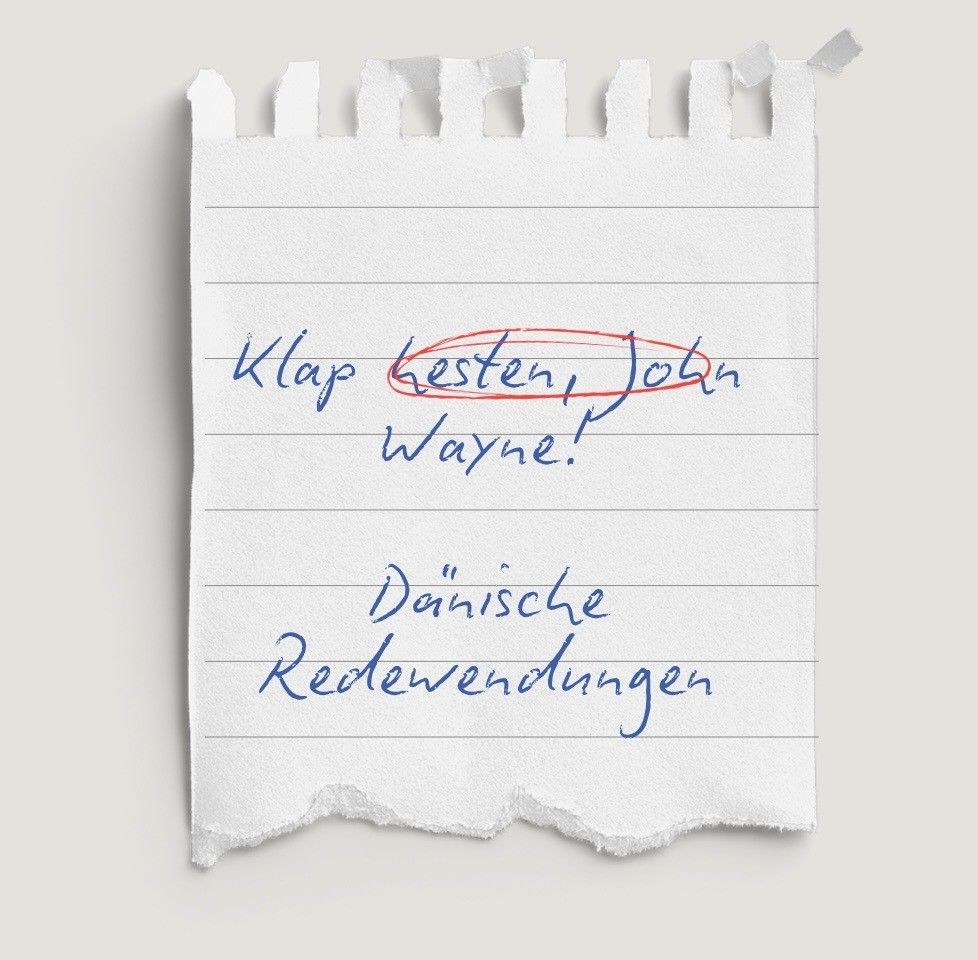 Klap hesten, John
Wayne!
Dänische
Redewendungen